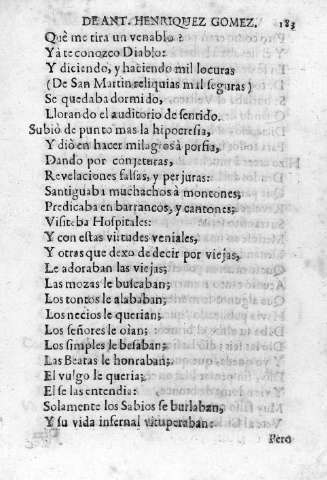 DE ANT. HENRIQUEZ GOMEZ. 183
Què me tira un venablo?
Yà te conozco Diablo:
Y diciendo, y haciendo mil locuras
(De San Martin reliquias mal seguras)
Se quedaba dormido,
Llorando el auditorio de sentido.
Subiò de punto mas la hipocresia,
Y diò en hacer milagros à porfia,
Dando por conjeturas,
Revelaciones falsas, y perjuras:
Santiguaba muchachos à montones,
Predicaba en barrancos, y cantones,
Visiteba Hospitales:
Y con estas virtudes veniales,
Y otras que dexo de decir por viejas,
Le adoraban las viejas;
Las mozas le buscaban;
Los tontos le alababan;
Los necios le querian;
Los señores le oìan;
Los simples le besaban;
Las Beatas le honraban;
El vulgo le queria;
El se las entendia:
Solamente los Sabios se burlaban,
Y su vida infernal vituperaban:
Pero